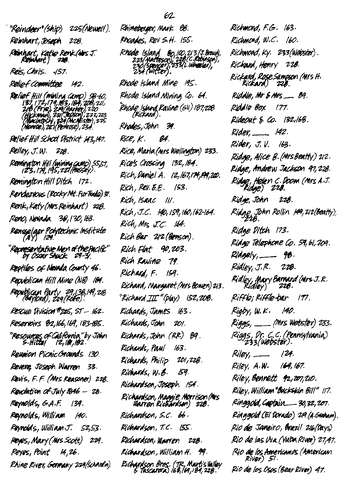 62
"Reindeer" (ship) 225 (Newell).
Reinhart, Joseph 228.
Reinhart, Katie Renk (Mrs. J.
Reinhart) 228.
Reis, Chris. 457.
Relief Committee 142.
Relief Hill (mining camp) 58-60,
Relief Hill School District 143, 147.
Relley, J.W. 228.
Remington Hill (mining camp) 55, 57,
Remington Hill Ditch 172.
Rendezvous (Rocky Mt. Fur Trade)
Renk, Katy (Mrs Reinhart) 228.
Reno, Nevada 36, 130, 163.
Rensselaer Polytechnic Institute
(N.Y.) 124.
"Representative Men of the Pacific"
by Oscar Shuck 29-31.
Reptiles of Nevada County 46.
Republican Hill Mine (NB) 184.
Republican Party
Rescue Division #225, ST- 162.
Reservoirs 92, 166, 169, 183-185.
"Resources of California" by John
S. Hittell 12, 181, 192.
Reunion Picnic Grounds 130.
Revere, Joseph Warren 33.
Revis, F.F. (Mrs Reasoner) 228.
Revolution of July 1846 - 28.
Reynolds, G.A.F. 139.
Reynolds, William 140.
Reynolds, William J. 52, 53.
Reyes, Mary (Mrs Scott) 229.
Reyes, Point 14, 26.
Rhine River, Germany 224 (Schardin).
Rhineberger, Mark 88.
Rhoades, Rev S.H. 155.
Rhode Island
Rhode Island Mine 195.
Rhode Island Mining Co. 64.
Rhode Island Ravine (GV) 187, 228
(Rickard).
Rhodes, John 39.
Rice, K. 84.
Rice, Maria (Mrs Wellington) 233.
Rice's Crossing 132, 184.
Rich, Daniel A. 12, 167, 174, 199, 210.
Rich, Rev. E.E. 153.
Rich, Isaac 111.
Rich, J.C. 140, 159, 160, 162-164.
Rich, Mrs J.C. 164.
Rich Bar 212 (Benson).
Rich Flat 90, 203.
Rich Ravine 79.
Richard, F. 154.
Richard, Margaret (Mrs Bowen) 213.
"Richard III" (play) 152, 208.
Richards, James 163.
Richards, John 201.
Richards, John (R.R.) 89.
Richards, Paul 163.
Richards, Philip 201, 228.
Richards, W.B. 59.
Richardson, Joseph 154.
Richardson, Maggie Morrison (Mrs
Warren Richardson) 228.
Richardson, S.C. 66.
Richardson, T.C. 155.
Richardson, Warren 228.
Richardson, William H. 99.
Richardson Bros. (TR, Martis Valley
& Tuscarora) 168, 169, 184, 228.
Richmond, F.G. 163.
Richmond, N.C. 160.
Richmond, Ky. 233 (Webster).
Rickard, Henry 228.
Rickard, Rose Sampson (Mrs H.
Rickard) 228.
Riddle, Mr & Mrs 89.
Riddle Box 177.
Rideout & Co. 132, 168.
Rider, 142.
Rider, J.V. 163.
Ridge, Alice B. (Mrs Beatty) 212.
Ridge, Andrew Jackson 97, 228.
Ridge, Helen C. Doom (Mrs A.J.
Ridge) 228.
Ridge, John 228.
Ridge, John Rollin 149, 212 (Beatty),
228.
Ridge Ditch 173.
Ridge Telephone Co. 59, 61, 209.
Ridgely, 98.
Ridley, J.R. 228.
Ridley, Mary Barnard (Mrs J.R.
Ridley) 228.
Riffle; Riffle-bar 177.
Rigby, W.K. 140.
Riggs, (Mrs Webster) 233.
Riggs, Dr. C.C. (Pennsylvania)
233 (Webster).
Riley, 124.
Riley, A.W. 164, 167.
Riley, Bennett 92, 207, 210.
Riley, William "Buckskin Bill" 117.
Ringgold, Captain 30, 32, 207.
Ringgold (El Dorado) 219 (A. Graham).
Rio de Janeiro, Brazil 226 (Days)
Rio de las Uva (Yuba River) 27, 47.
Rio de los Americanos (American
River) 51.
Rio de los Osos (Bear River) 47.